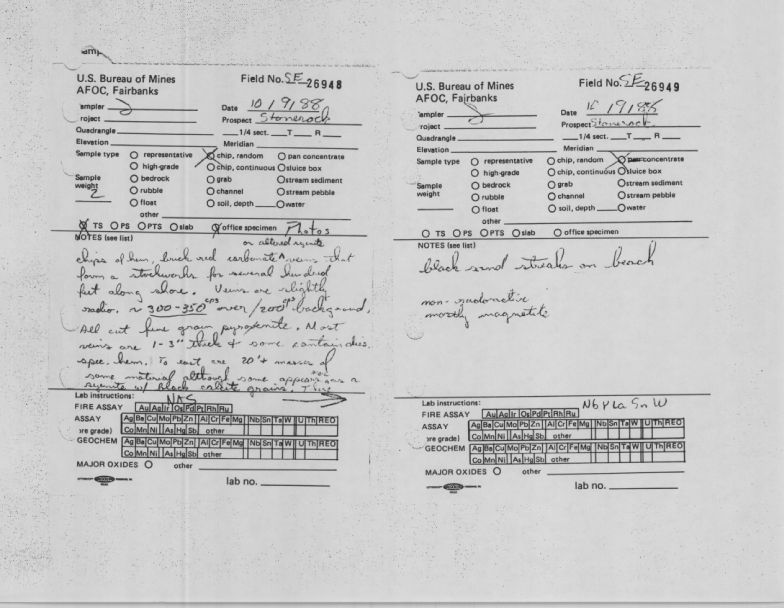 U.S. Bureau of Mines
AFOC, Fairbanks
Field No. SE 26948
ampler
Date 10/9/88
roject
Prospect Stonerock
Quadrangle
1/4 sect. T R
Elevation
Meridian
Sample type
representative
chip, random
pan concentrate
high-grade
chip, continuous
sluice box
Sample weight 2
bedrock
grab
stream sediment
rubble
channel
stream pebble
float
soil, depth
water
other
TS PS PTS slab office specimen Photos
NOTES (see list)
or altered syenite
chips of hem, brick red carbonate ^ veins that
form a stockworks for several hundred
feet along shore. Veins are slightly
radio. ~ 300-350 cps over /200 cps background.
All cut fine grain pyroxenite. Most
veins are 1-3" thick & some contain dis.
spec. hem. To east are 20'+ masses of
some material although some appears as a
syenite w/ black calcite grains.
Lab instructions: NAS
FIRE ASSAY Au Ag Ir Os Pd Pt Rh Ru
ASSAY Ag Ba Cu Mo Pb Zn Al Cr Fe Mg Nb Sn Ta W U Th REO
(ore grade) Co Mn Ni As Hg Sb other
GEOCHEM Ag Ba Cu Mo Pb Zn Al Cr Fe Mg Nb Sn Ta W U Th REO
Co Mn Ni As Hg Sb other
MAJOR OXIDES other
lab no.
U.S. Bureau of Mines
AFOC, Fairbanks
Field No. SE 26949
ampler
Date
roject
Prospect Stonerock
Quadrangle
1/4 sect. T R
Elevation
Meridian
Sample type
representative
chip, random
pan concentrate
high-grade
chip, continuous
sluice box
Sample weight
bedrock
grab
stream sediment
rubble
channel
stream pebble
float
soil, depth
water
other
TS PS PTS slab office specimen
NOTES (see list)
black sand streaks on beach
non-radometric
mostly magnetite
Lab instructions: Nb Y La Sn W
FIRE ASSAY Au Ag Ir Os Pd Pt Rh Ru
ASSAY Ag Ba Cu Mo Pb Zn Al Cr Fe Mg Nb Sn Ta W U Th REO
(ore grade) Co Mn Ni As Hg Sb other
GEOCHEM Ag Ba Cu Mo Pb Zn Al Cr Fe Mg Nb Sn Ta W U Th REO
Co Mn Ni As Hg Sb other
MAJOR OXIDES other
lab no.